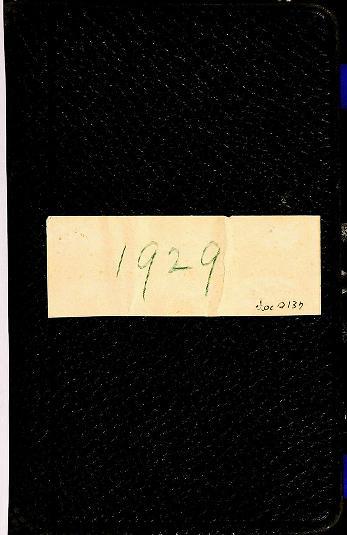 1929
doc 0137